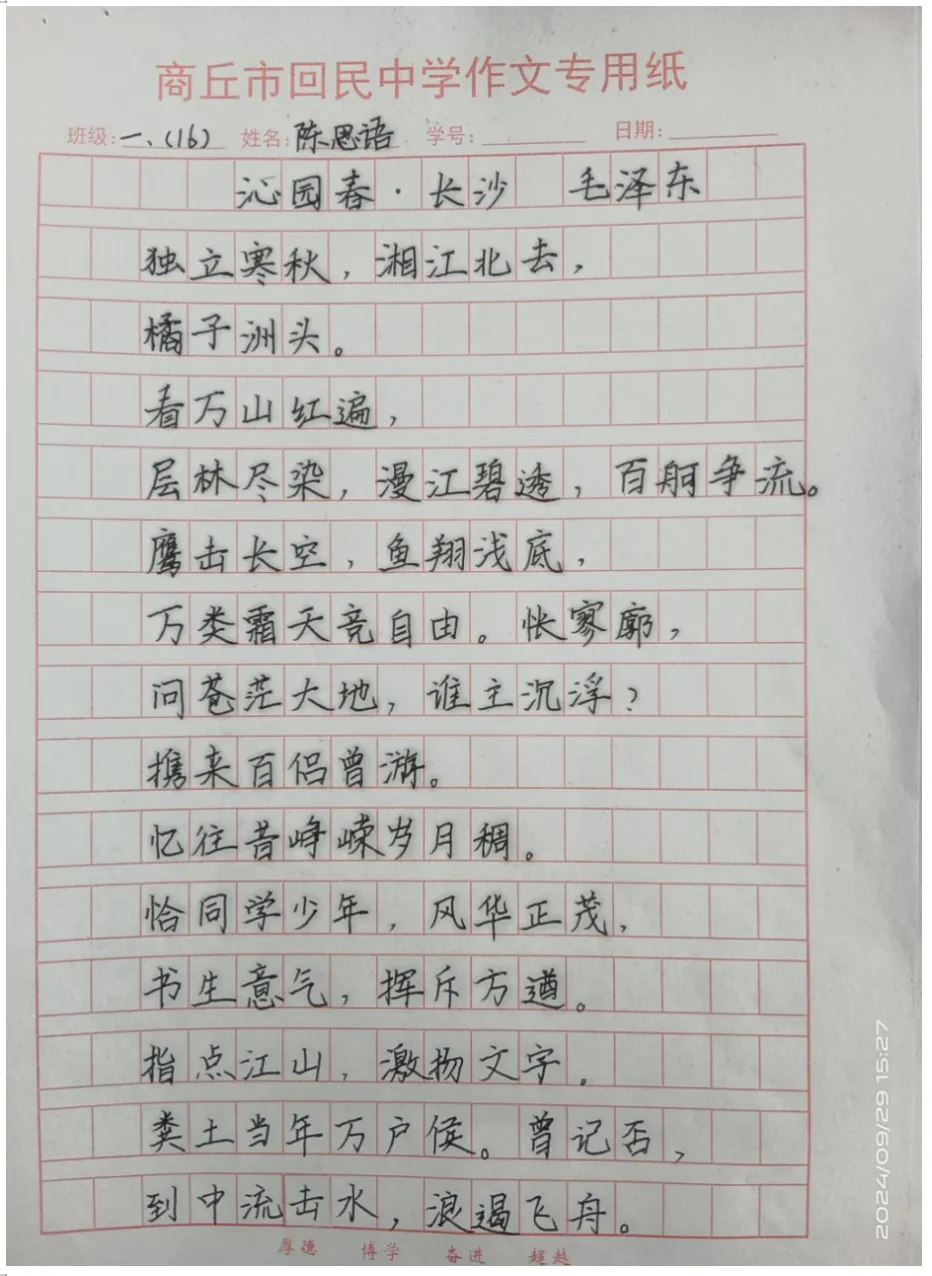 商丘市回民中学作文专用纸
班级:一.(16) 姓名:陈思语 学号: 日期:
沁园春·长沙 毛泽东
独立寒秋,湘江北去,
橘子洲头。
看万山红遍,
层林尽染,漫江碧透,百舸争流。
鹰击长空,鱼翔浅底,
万类霜天竞自由。怅寥廓,
问苍茫大地,谁主沉浮?
携来百侣曾游。
忆往昔峥嵘岁月稠。
恰同学少年,风华正茂,
书生意气,挥斥方遒。
指点江山,激扬文字.
粪土当年万户侯。曾记否,
到中流击水,浪遏飞舟。
厚德 博学 奋进 超越
2024/09/29 15:27